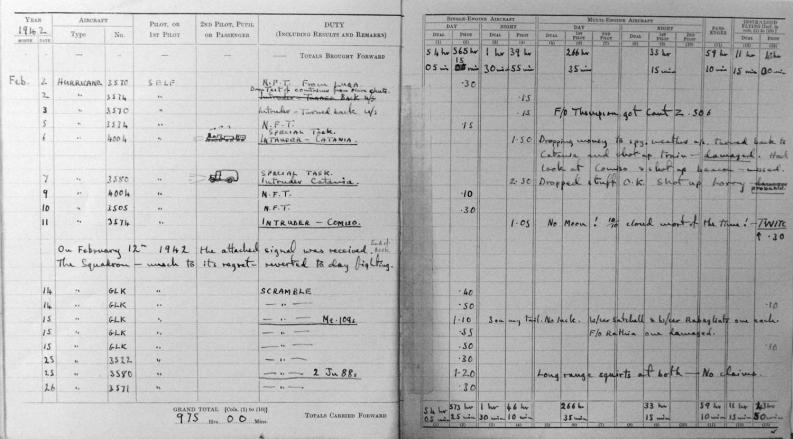 YEAR
1942
MONTH DATE
AIRCRAFT
Type No.
PILOT, OR 1ST PILOT
2ND PILOT, PUPIL OR PASSENGER
DUTY
(INCLUDING RESULTS AND REMARKS)
SINGLE-ENGINE AIRCRAFT
MULTI-ENGINE AIRCRAFT
DAY NIGHT DAY NIGHT
DUAL PILOT DUAL PILOT DUAL 1ST PILOT 2ND PILOT DUAL 1ST PILOT 2ND PILOT
PASSENGER
DUAL PILOT
(1) (2) (3) (4) (5) (6) (7) (8) (9) (10) (11) (12) (13)
TOTALS BROUGHT FORWARD
54 hr 565 hr 1 hr 39 hr 266 hr 33 hr 59 hr 11 hr
05 min 30 min 55 min 35 min 15 min 10 min 15 min
Feb. 2 HURRICANE 3570 SELF N.F.T. From Luqa. .30
2 " 3574 " .15
3 " 3570 " Intruder - Turned back u/s .15 F/O Thompson got Cant Z. 506
5 " 3574 " N.F.T. .15
6 " 4004 " SPECIAL TASK. INTRUDER - CATANIA. 1.50 Dropping money to spy, weather u/s. turned back to
Catania and shot up train - damaged. Had
look at Comiso & shot up beacon - missed.
7 " 3580 " SPECIAL TASK. Intruder Catania. 2.30 Dropped stuff O.K. Shot up lorry probable
9 " 4004 " N.F.T. .10
10 " 3505 " N.F.T. .30
11 " 3574 " INTRUDER - COMISO. 1.05 No Moon! 10/10 cloud most of the time! - TWITE
↑ .30
On February 12th 1942 the attached signal was received. End of book
The Squadron - much to its regret - reverted to day fighting.
14 " GLK " SCRAMBLE .40
14 " GLK " - " - .50 .10
15 " GLK " - " - Me. 109s 1.10 3 on my tail. No luck. W/cer Satchell & W/cer Rabagliati one each.
15 " GLK " - " - .35 F/O Rathie one damaged.
15 " GLK " - " - .50 .10
25 " 3522 " - " - .30
25 " 3580 " - " - 2 Ju 88s. 1.20 Long range squirts at both - No claims.
26 " 3571 " - " - .30
GRAND TOTAL [Cols. (1) to (10)]
975 Hrs. 00 Mins.
TOTALS CARRIED FORWARD
54 hr 573 hr 1 hr 46 hr 266 hr 33 hr 59 hr 11 hr
05 min 25 min 30 min 10 min 35 min 15 min 10 min 15 min
(1) (2) (3) (4) (5) (6) (7) (8) (9) (10) (11) (12) (13)